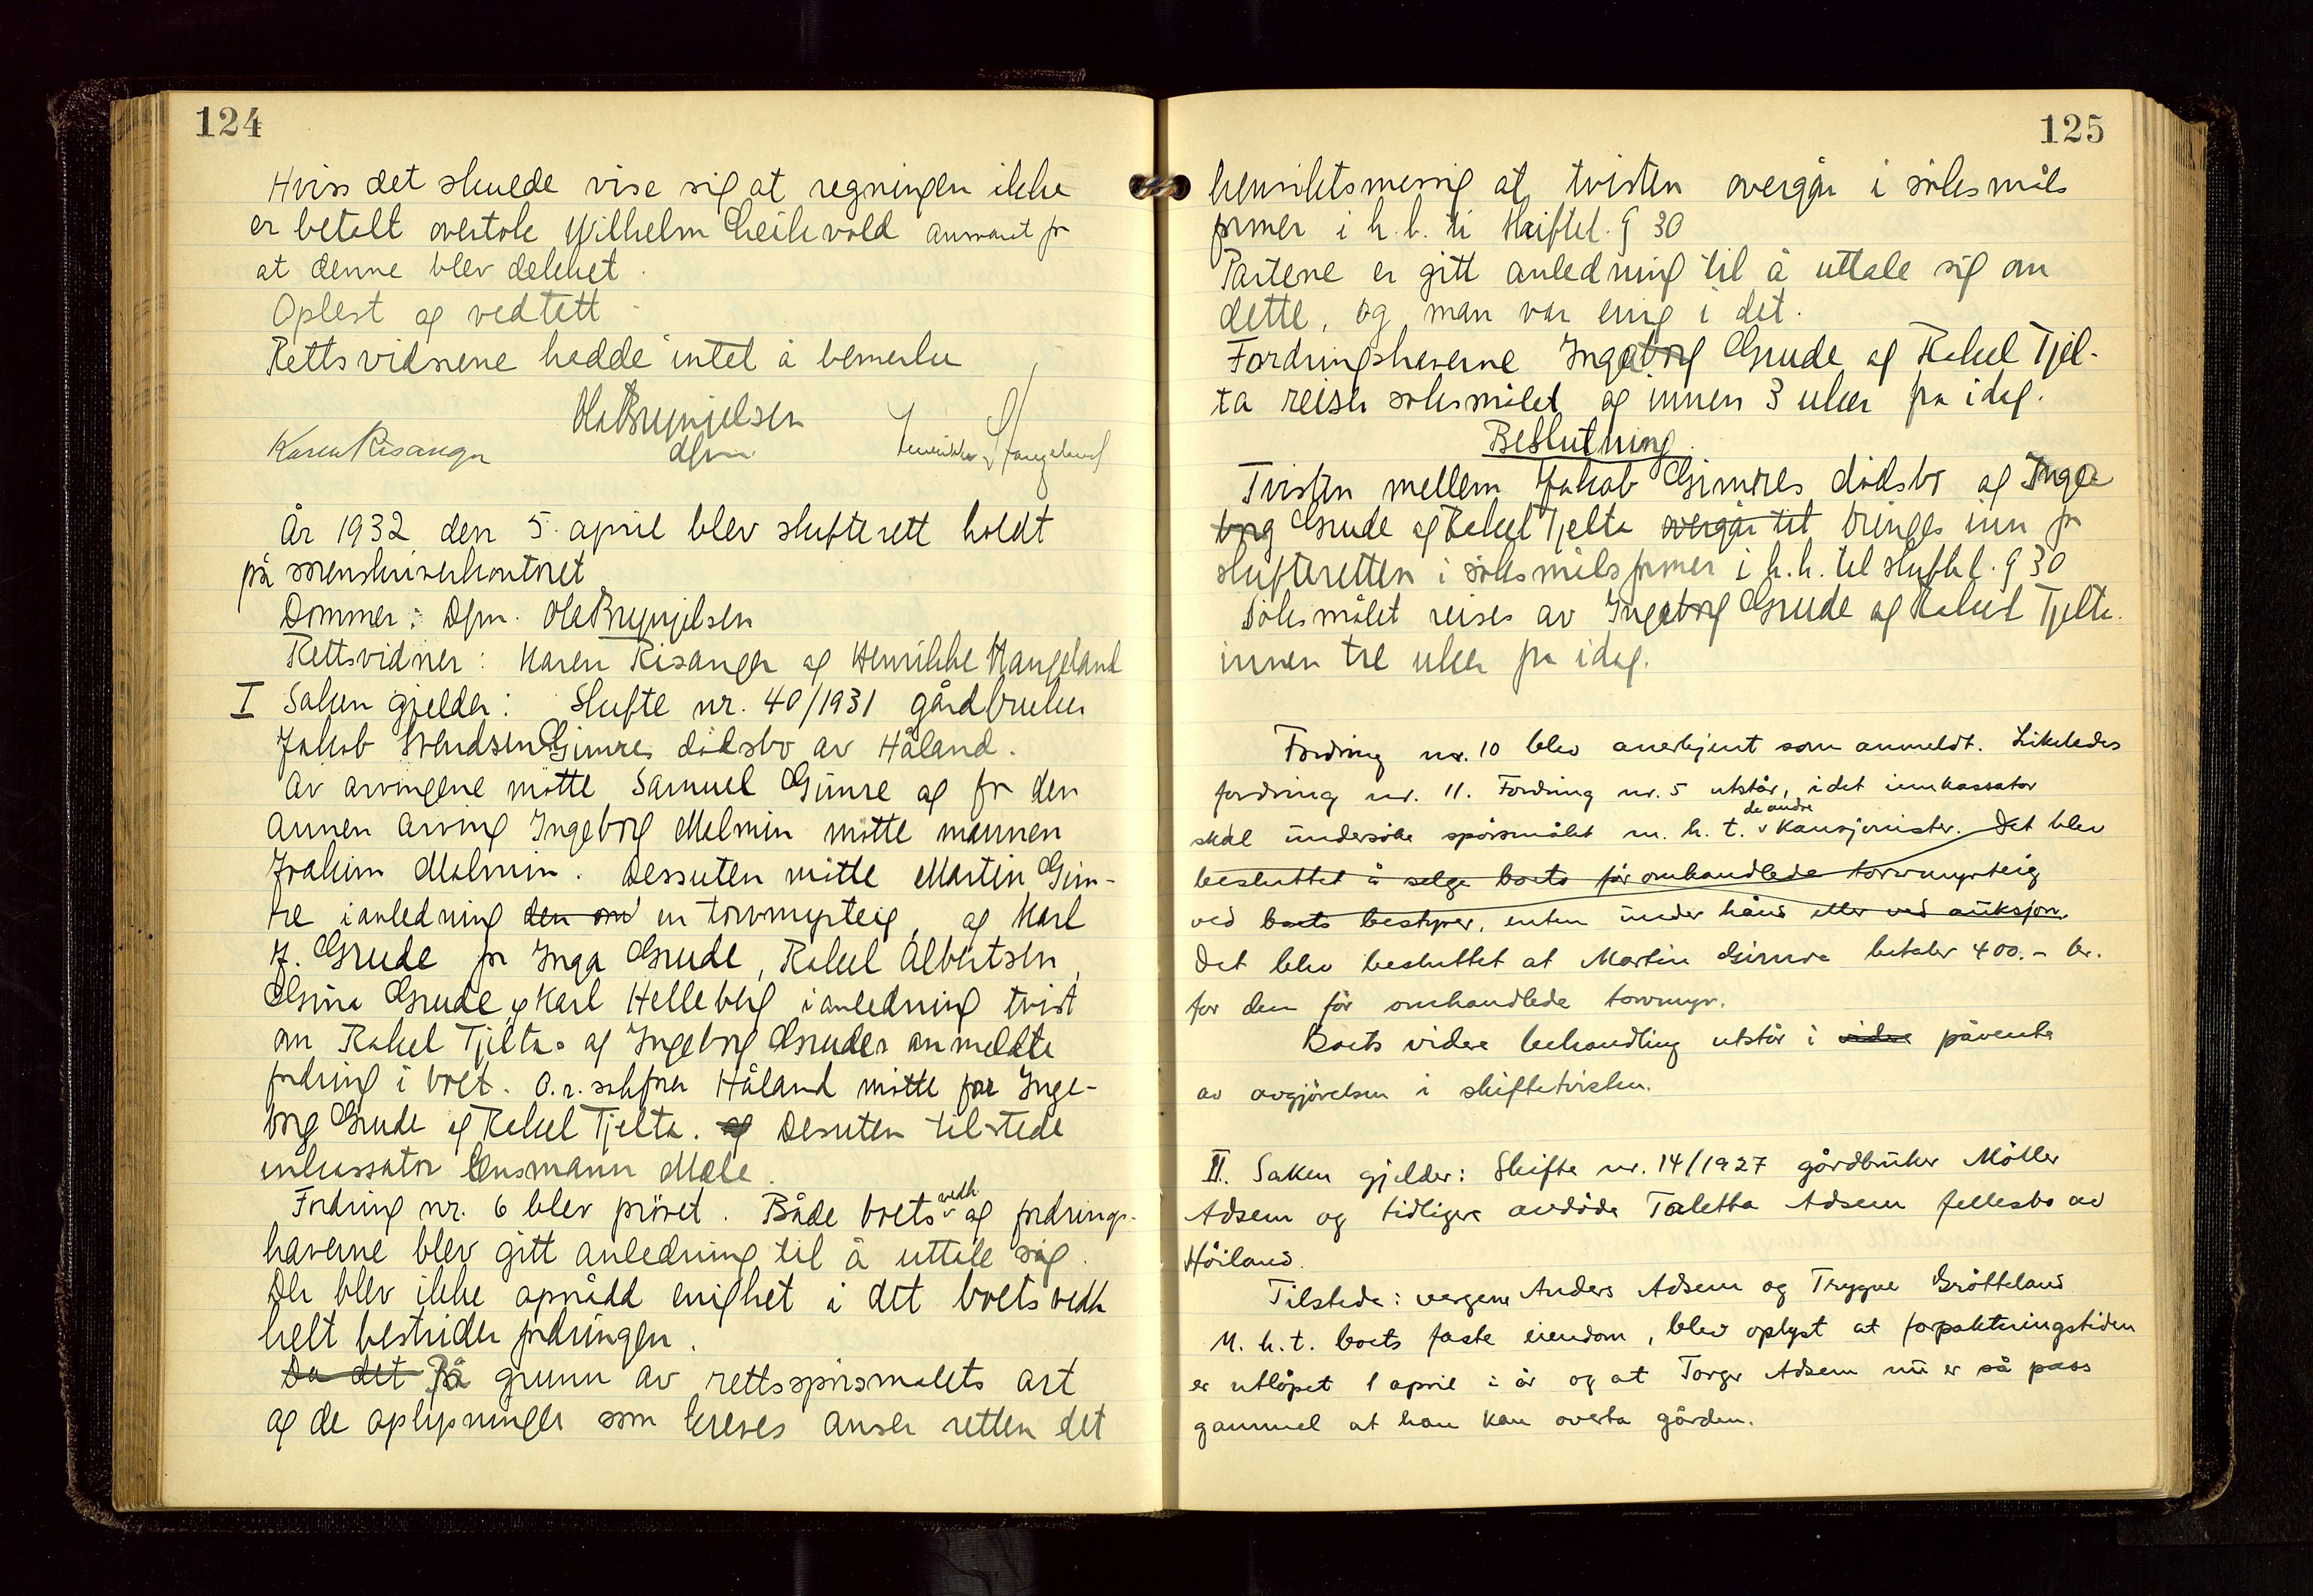 124
Hviss det skulde vise sig at regningen ikke
er betalt overtok Wilhelm Leikvold ansvaret for
at denne blev dekket.
Oplest og vedtatt.
Rettsvidnene hadde intet å bemerke
Ole Brynjelsen
dfm
Karen Risanger Henrikke Stangeland
År 1932 den 5. april blev skifterett holdt
på sorenskriverkontoret
Dommer: Dfm. Ole Brynjelsen
Rettsvidner: Karen Risanger og Henrikke Stangeland
I Saken gjelder: Skifte nr. 40/1931 gårdbruker
Jakob Svendsen Gimres dødsbo av Håland.
Av arvingene møtte Samuel Gimre og for den
annen arving Ingeborg Malmin møtte mannen
Joakim Malmin. Dessuten møtte Martin Gim-
re i anledning den om en torvmyrteig, og Karl
J. Grude for Inga Grude, Rakel Albertsen,
Gina Grude, og Karl Helleberg i anledning tvist
om Rakel Tjeltas og Ingeborg Grudes anmeldte
fordring i boet. O.r.sakfører Håland møtte for Inge-
borg Grude og Rakel Tjelta. og Desuten tilstede
inkassator lensmann Mæle.
Fordring nr. 6 blev prövet. Både boets vedk. og fordrings-
haverne blev gitt anledning til å uttale sig.
Der blev ikke opnådd enighet i det boets vedk
helt bestrider fordringen.
Da det På grunn av rettsspörsmålets art
og de oplysninger som kreves anser retten det
125
hensiktsmessig at tvisten overgår i söksmåls
former i h. t. til Skiftel. § 30
Partene er gitt anledning til å uttale sig om
dette, og man var enig i det.
Fordringshaverne Ingeborg Grude og Rakel Tjel-
ta reiser søksmålet og innen 3 uker fra idag.
Beslutning.
Tvisten mellem Jakob Gimres dödsbo og Inga
borg Grude og Rakel Tjelta overgår til bringes inn for
skifteretten i söksmåls former i h. h. til skiftel. § 30
Söksmålet reises av Ingeborg Grude og Rakel Tjelta.
innen tre uker fra idag.
Fordring nr. 10 blev anerkjent som anmeldt. Likeledes
fordring nr. 11. Fordring nr. 5 utstår, idet innkassator
skal undersöke spörsmålet m. h. t. de andre kausjonister. Det blev
besluttet å selge boets för omhandlede torvmyrteig
ved boets bestyrer, enten under hånd eller ved auksjon.
Det blev besluttet at Martin Gimre betaler 400.- kr.
for den för omhandlede torvmyr.
Boets videre behandling utstår i videre påvente
av avgjörelsen i skiftetvisten.
II. Saken gjelder: Skifte nr. 14/1927 gårdbruker Möller
Adsem og tidligere avdöde Taletta Adsem fellesbo av
Höiland.
Tilstede: vergene Anders Adsem og Trygve Grötteland
M. h. t. boets faste eiendom, blev oplyst at forpaktningstiden
er utlöpet 1 april i år og at Torger Adsem nu er så pass
gammel at han kan overta gården.